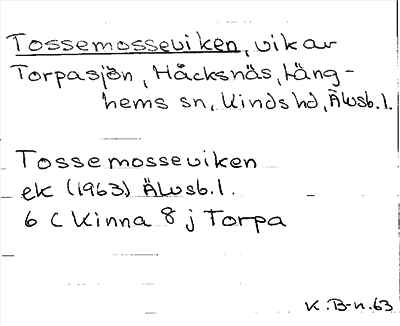 Tossemosseviken, vik av
Torpasjön, Håcksnäs, Läng-
hems sn, Kinds hd, Älvsb. l.
Tossemosseviken
ek (1963) Älvsb. l.
6 C Kinna 8 j Torpa
K. B-n. 63